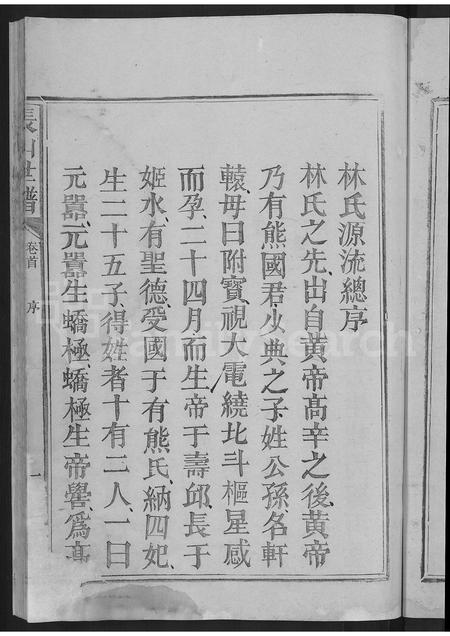 林氏源流總序
林氏之先、出自黃帝高辛之後、黃帝
乃有熊國君、少典之子、姓公孫名軒
轅、母曰附寶、視大電繞北斗樞星感
而孕、二十四月而生帝于壽邱、長于
姬水、有聖德、受國于有熊氏、納四妃、
生二十五子、得姓者十有二人、一曰
元囂、元囂生蟜極、蟜極生帝嚳、爲高
長山世譜
卷首
序
一
familysearch